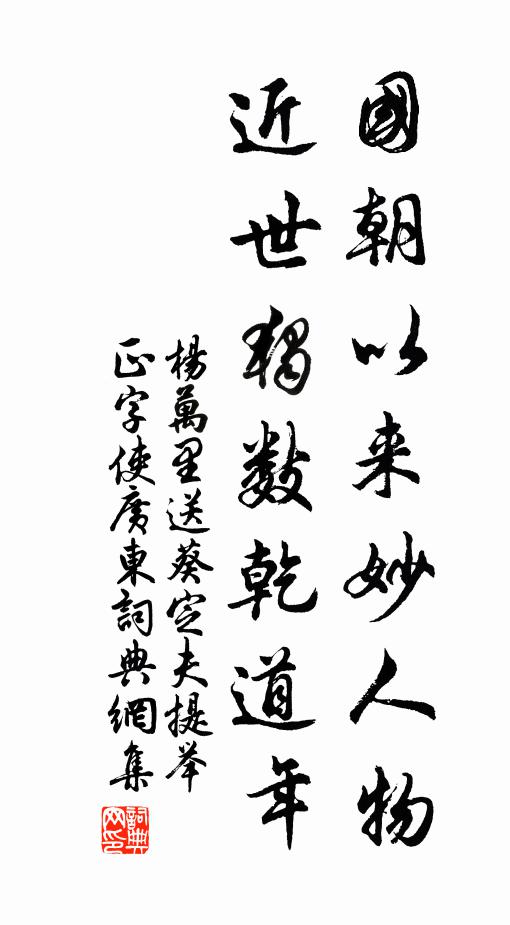 國朝以来妙人物
近世獨數乾道年
楊萬里送蔡定夫提举
正字使廣東詞典網集
詞典
网印